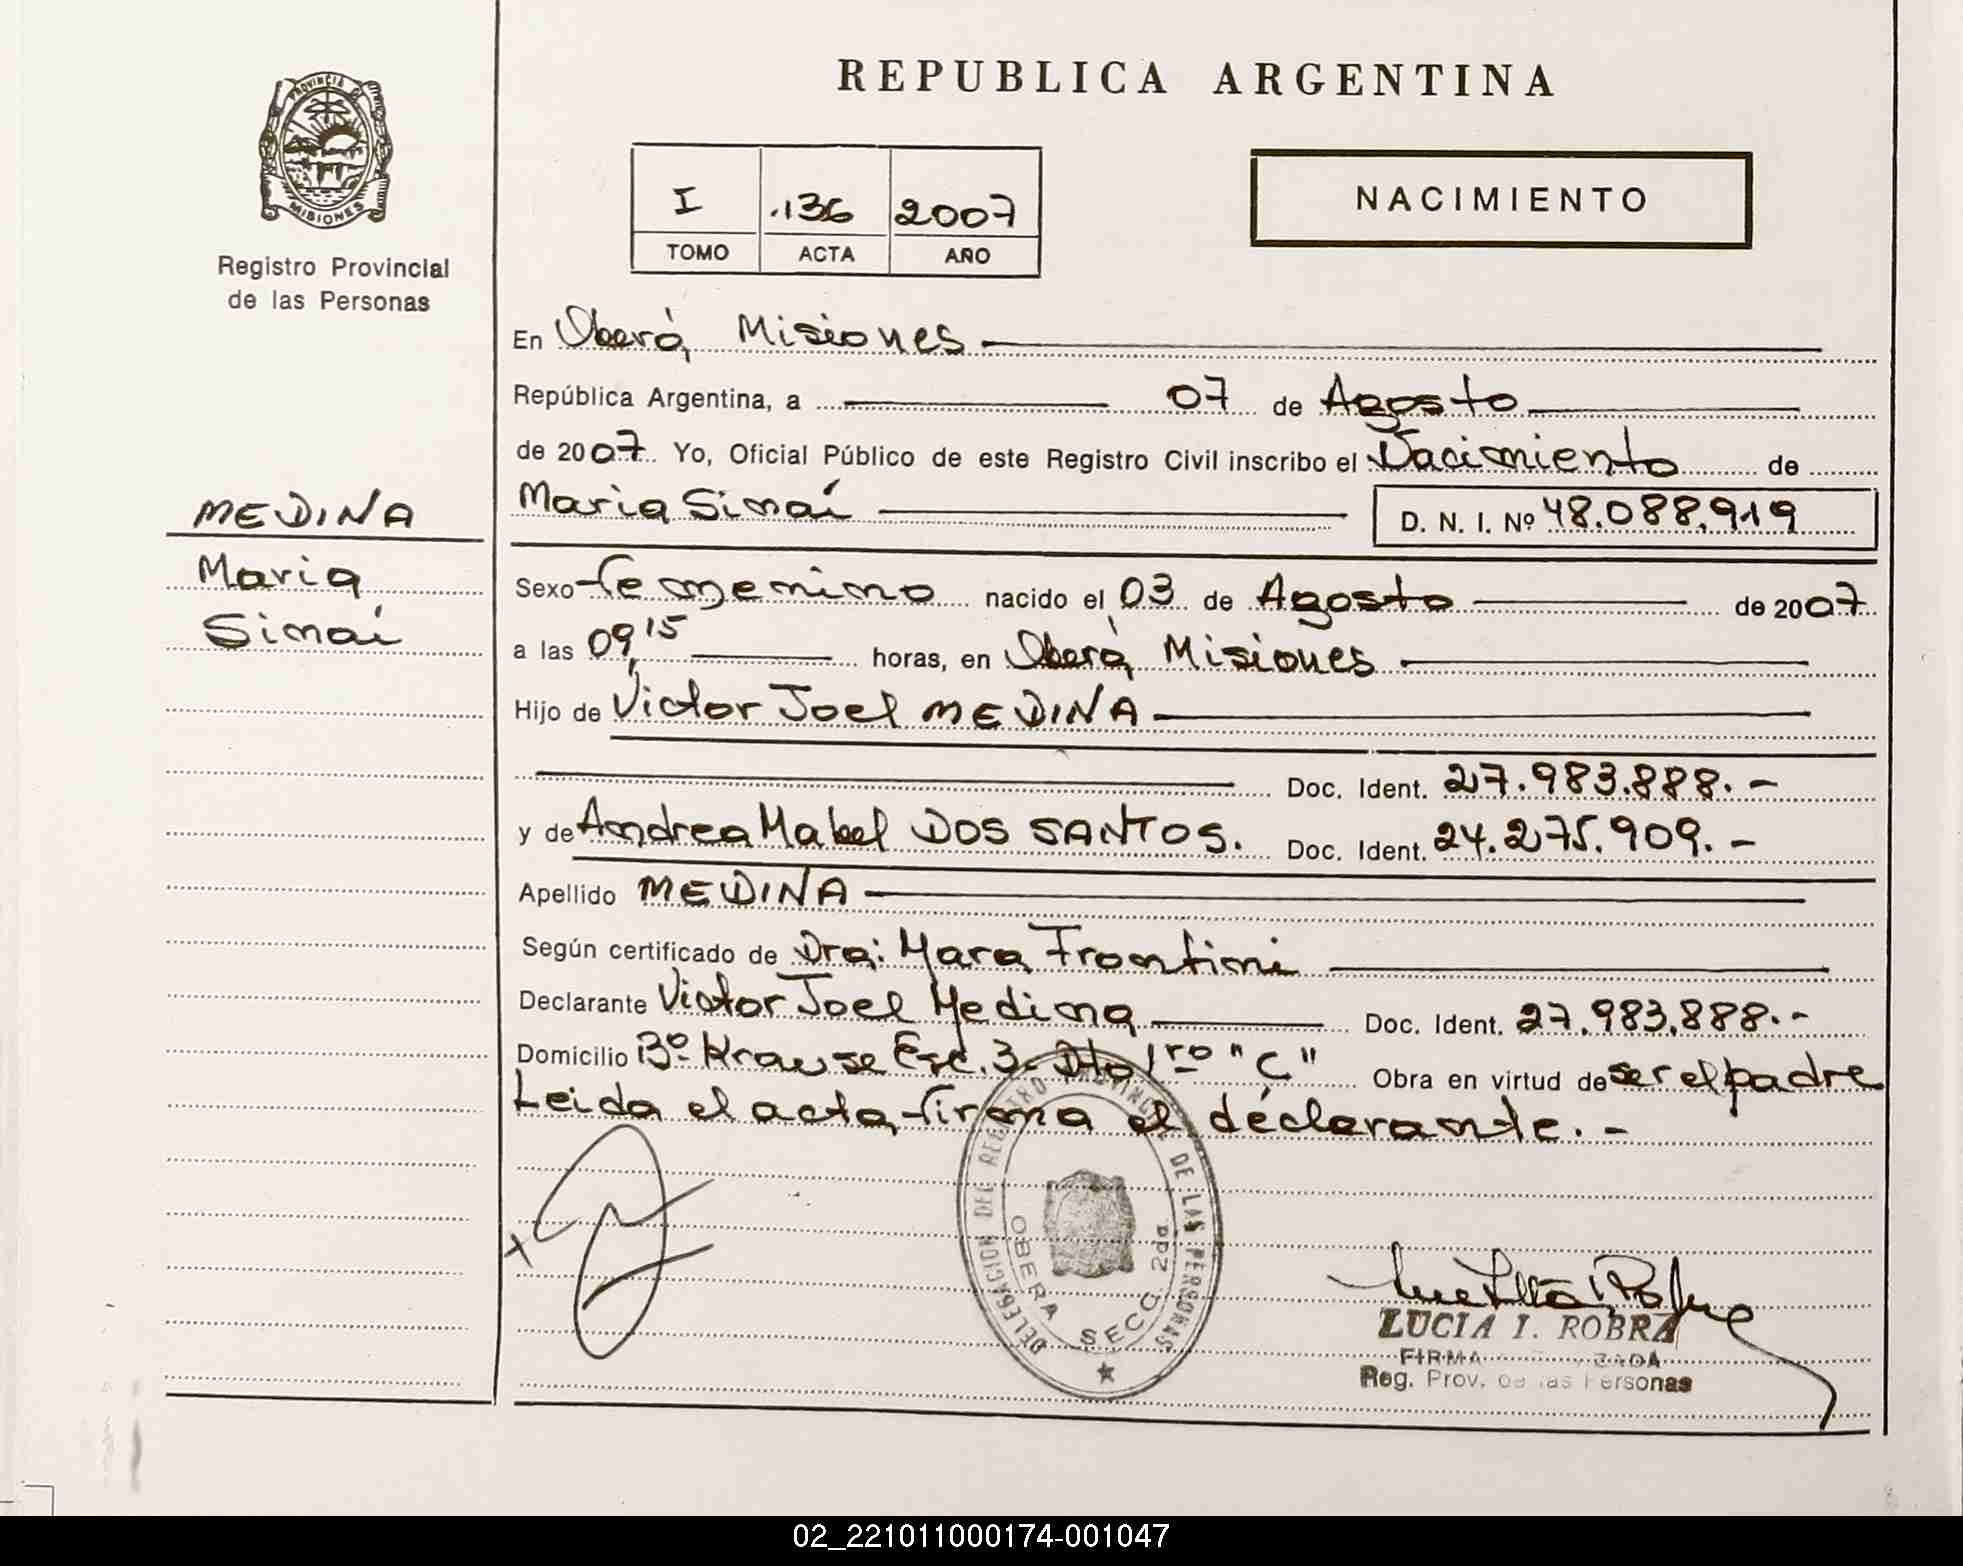 PROVINCIA D
MISIONES
Registro Provincial
de las Personas
MEDINA
Maria
Sinaí
REPUBLICA ARGENTINA
I .136 2007
TOMO ACTA AÑO
NACIMIENTO
En Oberá, Misiones
República Argentina, a 07 de Agosto
de 2007 Yo, Oficial Público de este Registro Civil inscribo el Nacimiento de
Maria Sinaí D. N. I. Nº 48.088.919
Sexo femenino nacido el 03 de Agosto de 2007
a las 09,15 horas, en Oberá, Misiones
Hijo de Victor Joel MEDINA
Doc. Ident. 27.983.888.-
y de Andrea Mabel DOS SANTOS. Doc. Ident. 24.275.909.-
Apellido MEDINA
Según certificado de Dra: Mara Frontini
Declarante Victor Joel Medina Doc. Ident. 27.983.888.-
Domicilio Bº Krause Esc. 3- Dto 1ro "C" Obra en virtud de ser el padre
Leida el acta firma el declarante.-
DELEGACION DEL REGISTRO PROVINCIAL DE LAS PERSONAS
OBERA SECC. 2da
LUCIA I. ROBRA
FIRMA
Reg. Prov. de las Personas
02_221011000174-001047